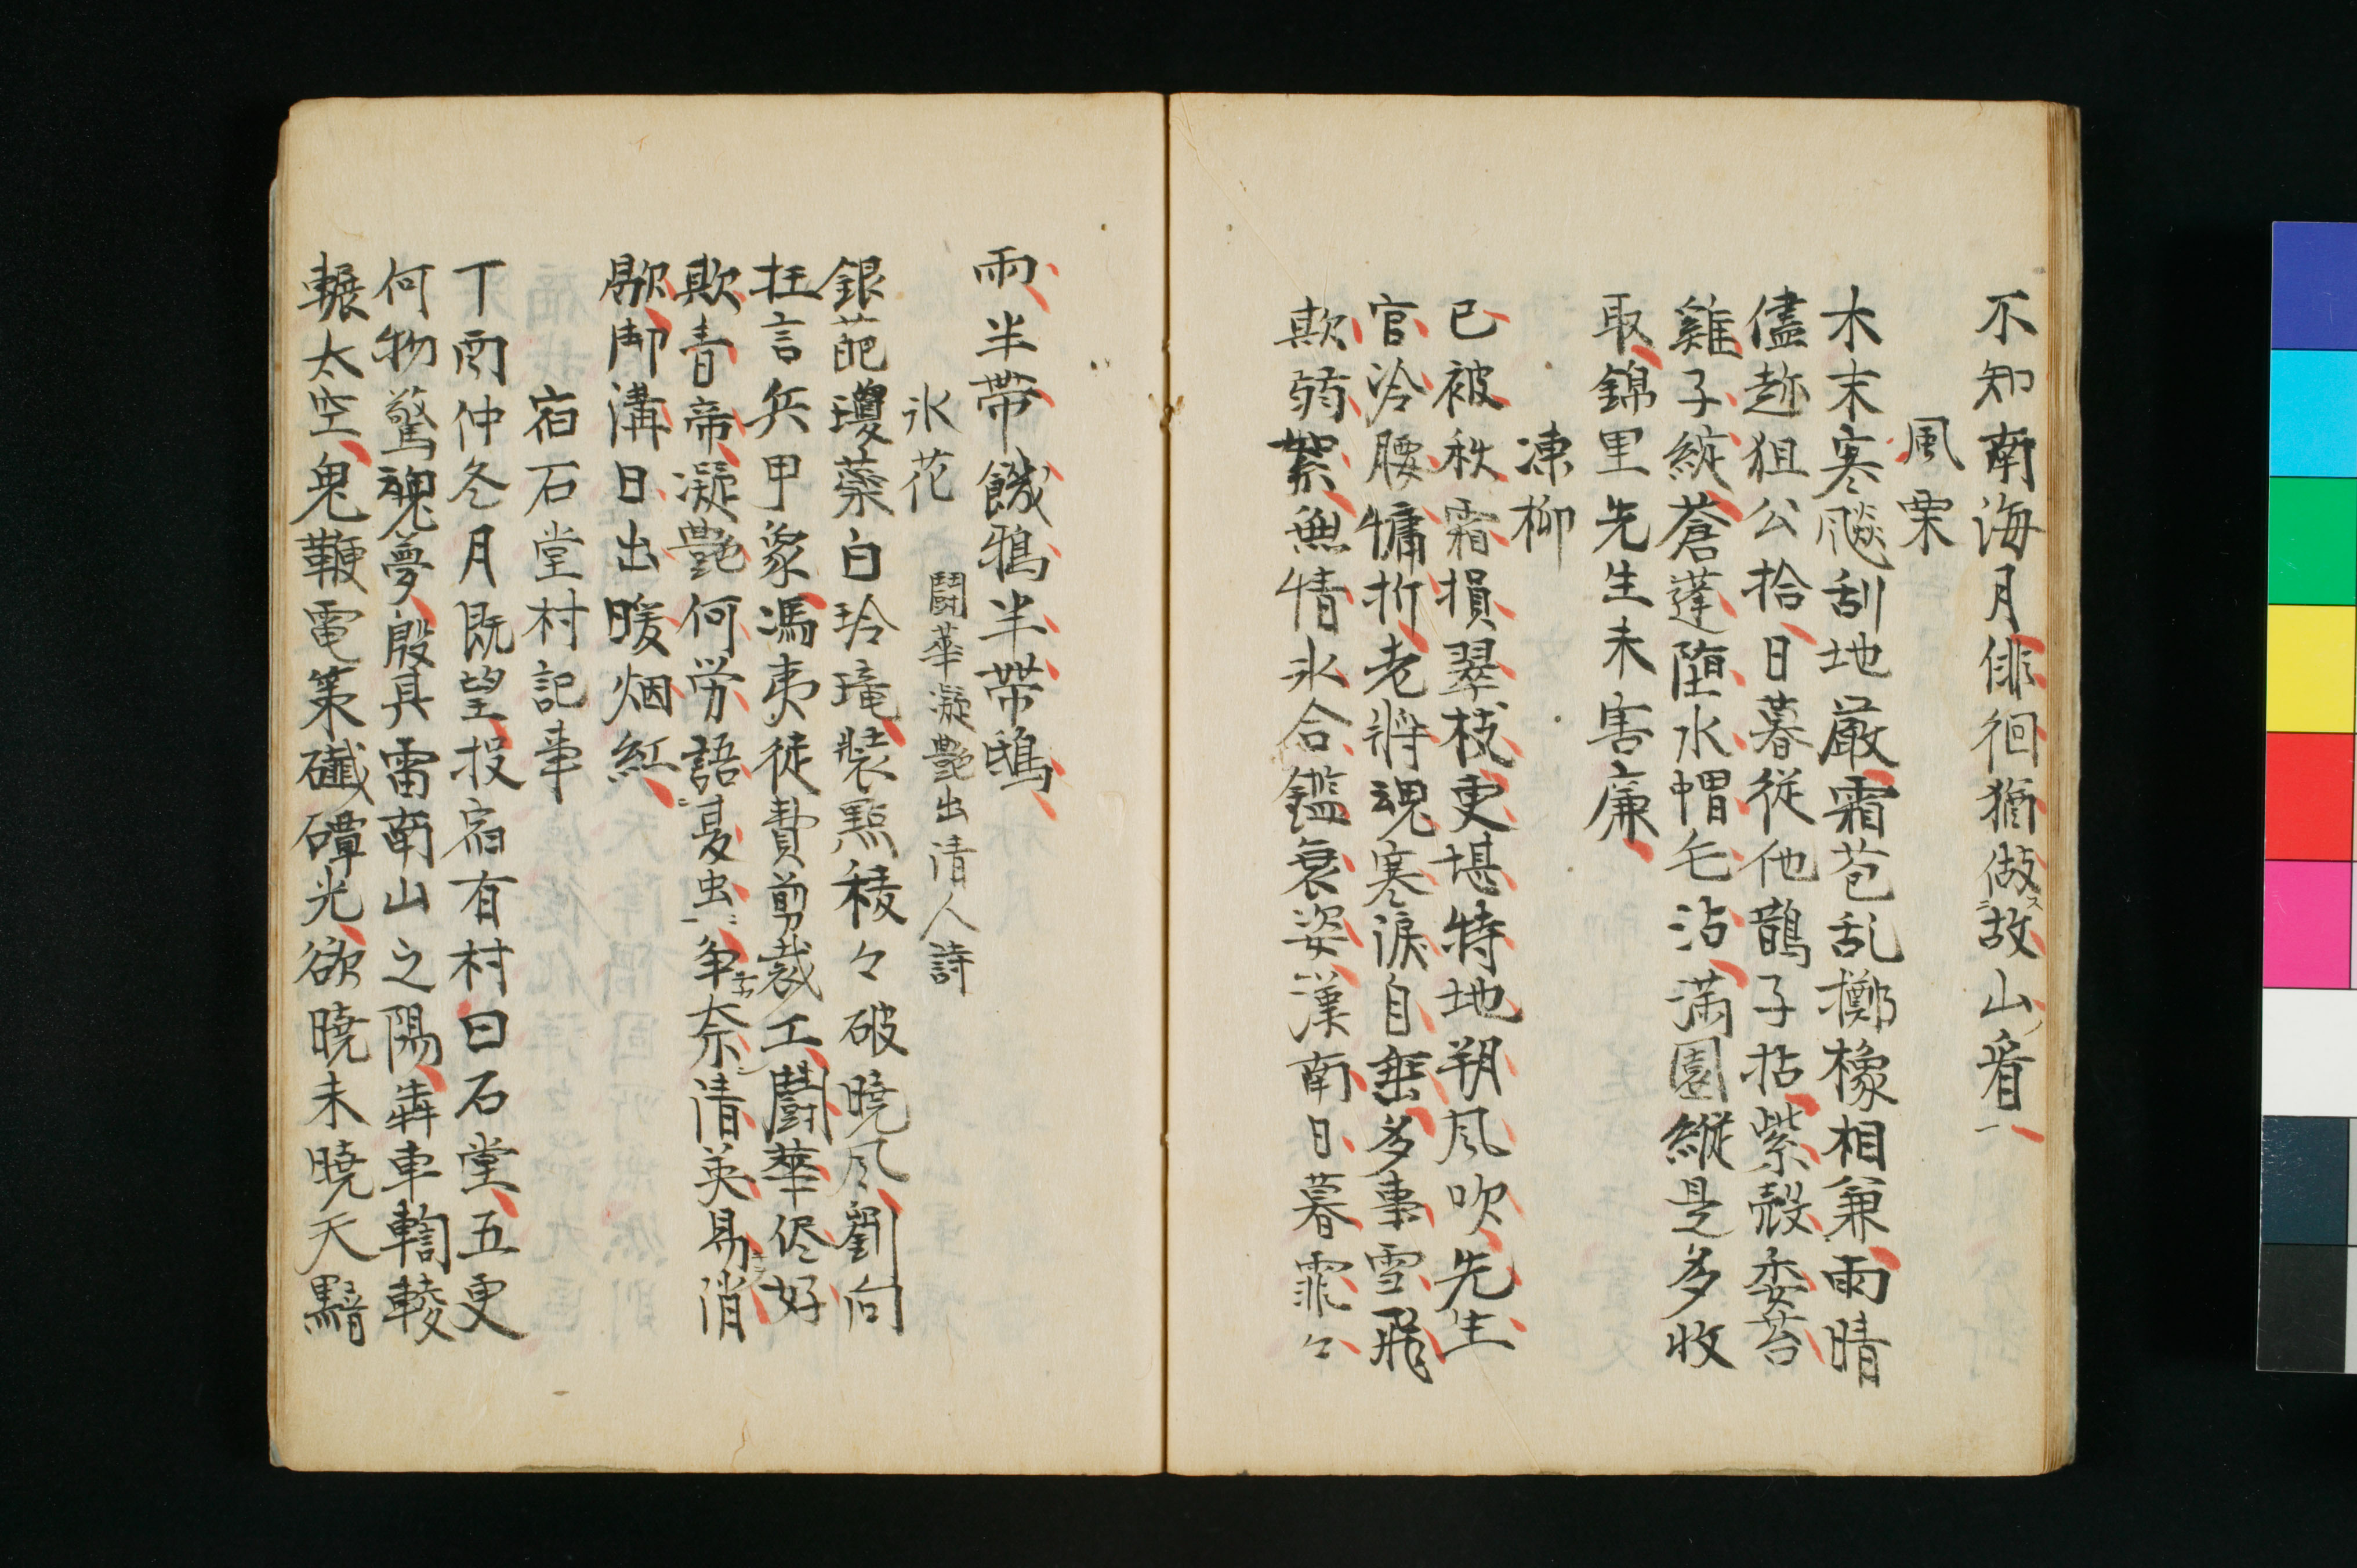 不知南海月俳徊猶做故山看
風栗
木末寒飈刮地厳霜苞乱擲橡相兼雨晴
儘趂狙公拾日暮従他鵲子拈紫殻委苔
雞子綻蒼蓬堕水帽毛沾満園縦是多收
取錦里先生未害廉
凍柳
已被秋霜損翠枝更堪特地朔风吹先生
官冷腰慵折老将魂寒淚自垂多事雪飛
欺弱絮無情氷合鑑衰姿漢南日暮霏々
雨半帶餓鴉半帯鴟
氷花 鬪華凝艶出清人詩
銀葩瓊蘂白玲瓏装點稜々破曉风劉向
枉言兵甲象馮夷徒費剪裁工鬪華侭好
欺青帝凝艶何労語夏虫争奈清英易消
歇御溝日出暖烟紅
宿石堂村記事
丁酉仲冬月既望投宿有村曰石堂五更
何物驚魂夢殷其雷南山之陽犇車轔轔
輾太空鬼鞭電策礮磹光欲曉未曉天黯